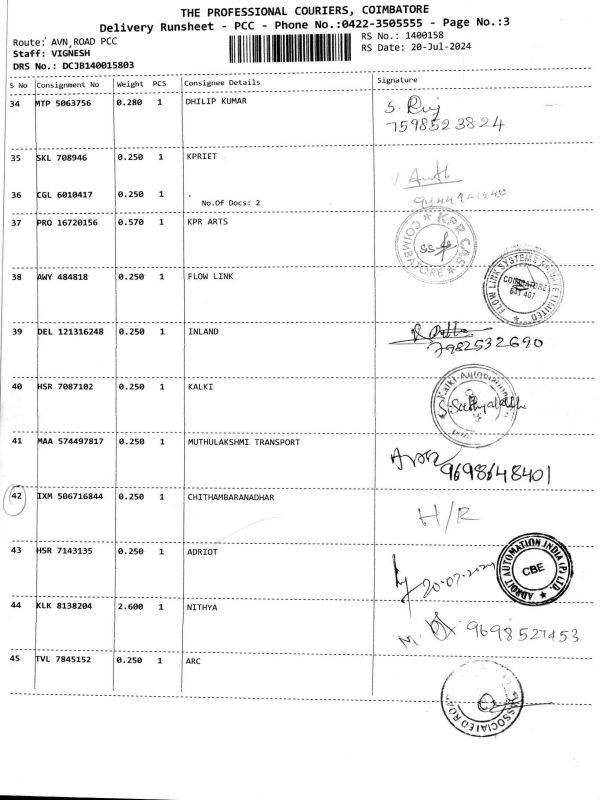 THE PROFESSIONAL COURIERS, COIMBATORE
Delivery Runsheet - PCC - Phone No.:0422-3505555 - Page No.:3
Route: AVN ROAD PCC
RS No.: 1400158
Staff: VIGNESH
RS Date: 20-Jul-2024
DRS No.: DCJB140015803
S No Consignment No Weight PCS Consignee Details Signature
34 MTP 5063756 0.280 1 DHILIP KUMAR
7598523824
35 SKL 708946 0.250 1 KPRIET
36 CGL 6010417 0.250 1 .
No.Of Docs: 2
37 PRO 16720156 0.570 1 KPR ARTS
★ KPR CAS ★ COIMBATORE
38 AWY 484818 0.250 1 FLOW LINK
FLOW LINK SYSTEMS PRIVATE LIMITED ★
COIMBATORE
641 407
39 DEL 121316248 0.250 1 INLAND
7982532690
40 HSR 7087102 0.250 1 KALKI
Kalki
41 MAA 574497817 0.250 1 MUTHULAKSHMI TRANSPORT
9698648401
42 IXM 506716844 0.250 1 CHITHAMBARANADHAR
H/R
43 HSR 7143135 0.250 1 ADRIOT
20-07-2024
ADROIT AUTOMATION INDIA (P) LTD. ★
CBE
44 KLK 8138204 2.600 1 NITHYA
M. 9698527453
45 TVL 7845152 0.250 1 ARC
ASSOCIATED ROAD